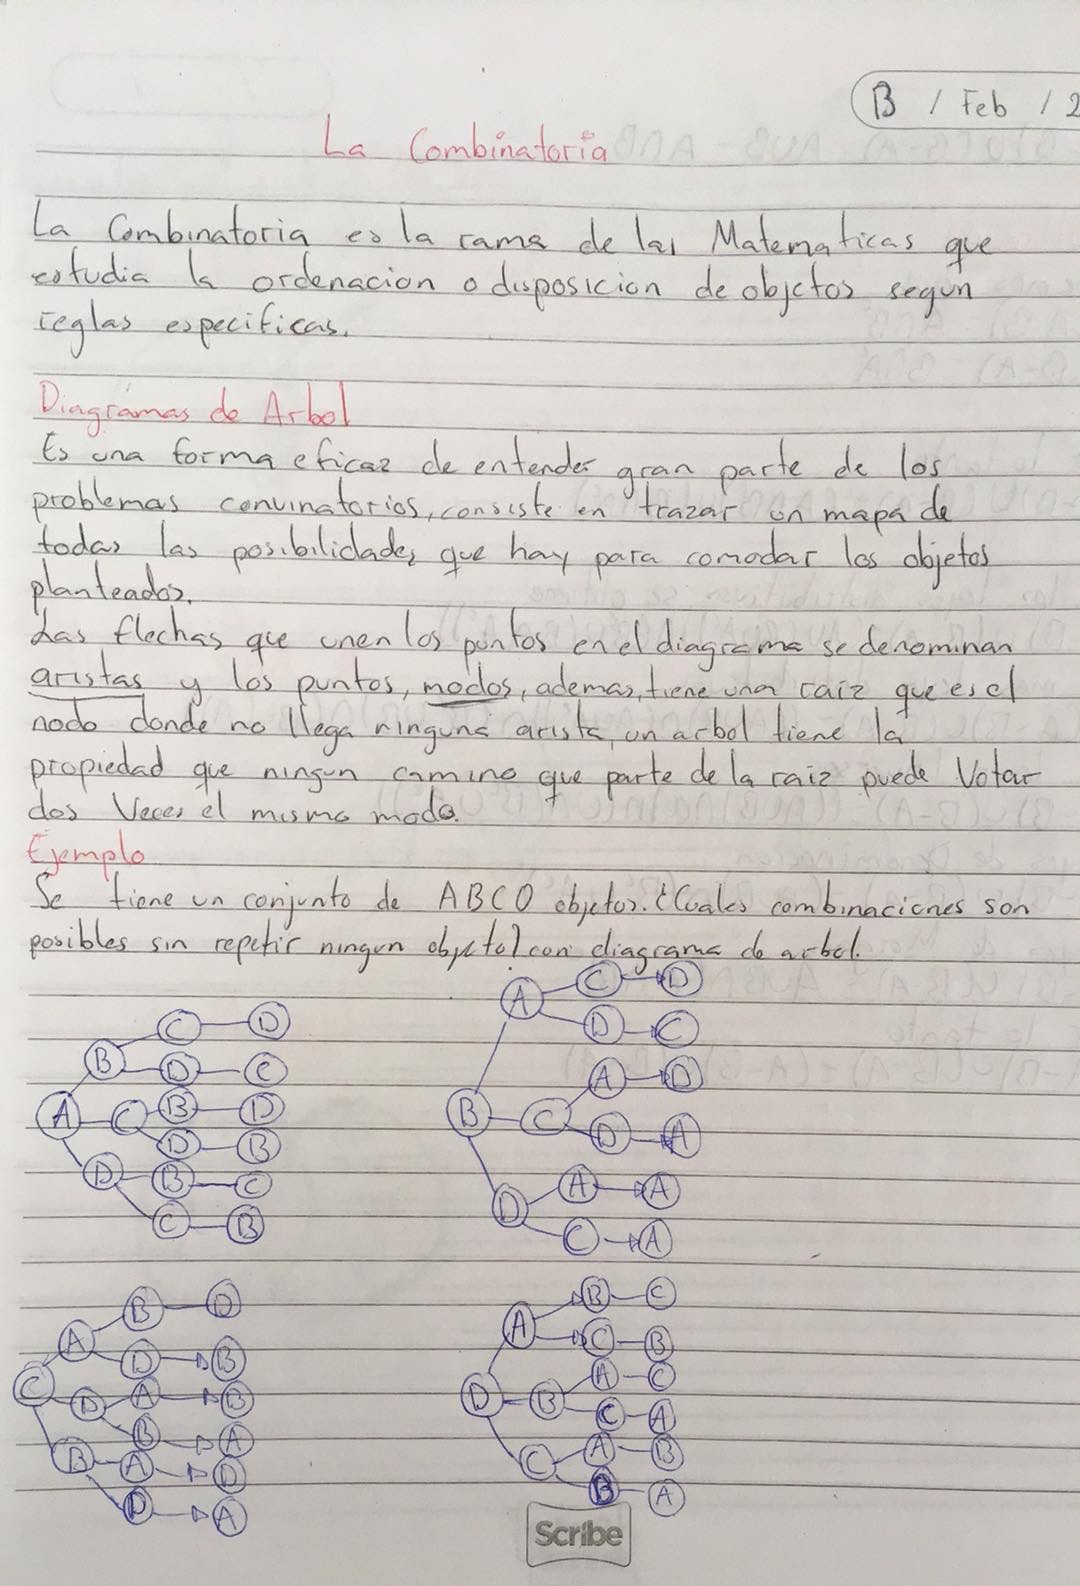 B / Feb / 2
La Combinatoria
La Combinatoria es la rama de las Matematicas que
estudia la ordenacion o disposicion de objetos segun
reglas especificas.
Diagramas de Arbol
Es una forma eficaz de entender gran parte de los
problemas convinatorios, consiste en trazar un mapa de
todas las posibilidades que hay para comodar los objetos
planteados.
Las flechas que unen los puntos en el diagrama se denominan
aristas y los puntos, modos, ademas, tiene una raiz que es el
nodo donde no llega ninguna arista, un arbol tiene la
propiedad que ningun camino que parte de la raiz puede Votar
dos Veces el mismo modo.
Ejemplo
Se tiene un conjunto de ABCD objetos. ¿Cuales combinaciones son
posibles sin repetir ningun objeto? con diagrama de arbol.
A
B C D
D C
C B D
D B
D B C
C B
B
A C D
D C
C A D
D A
D A A
C A
C
A B D
D B
D A B
B A
B A D
D A
D
A B C
C B
B A C
C A
C A B
B A
Scribe